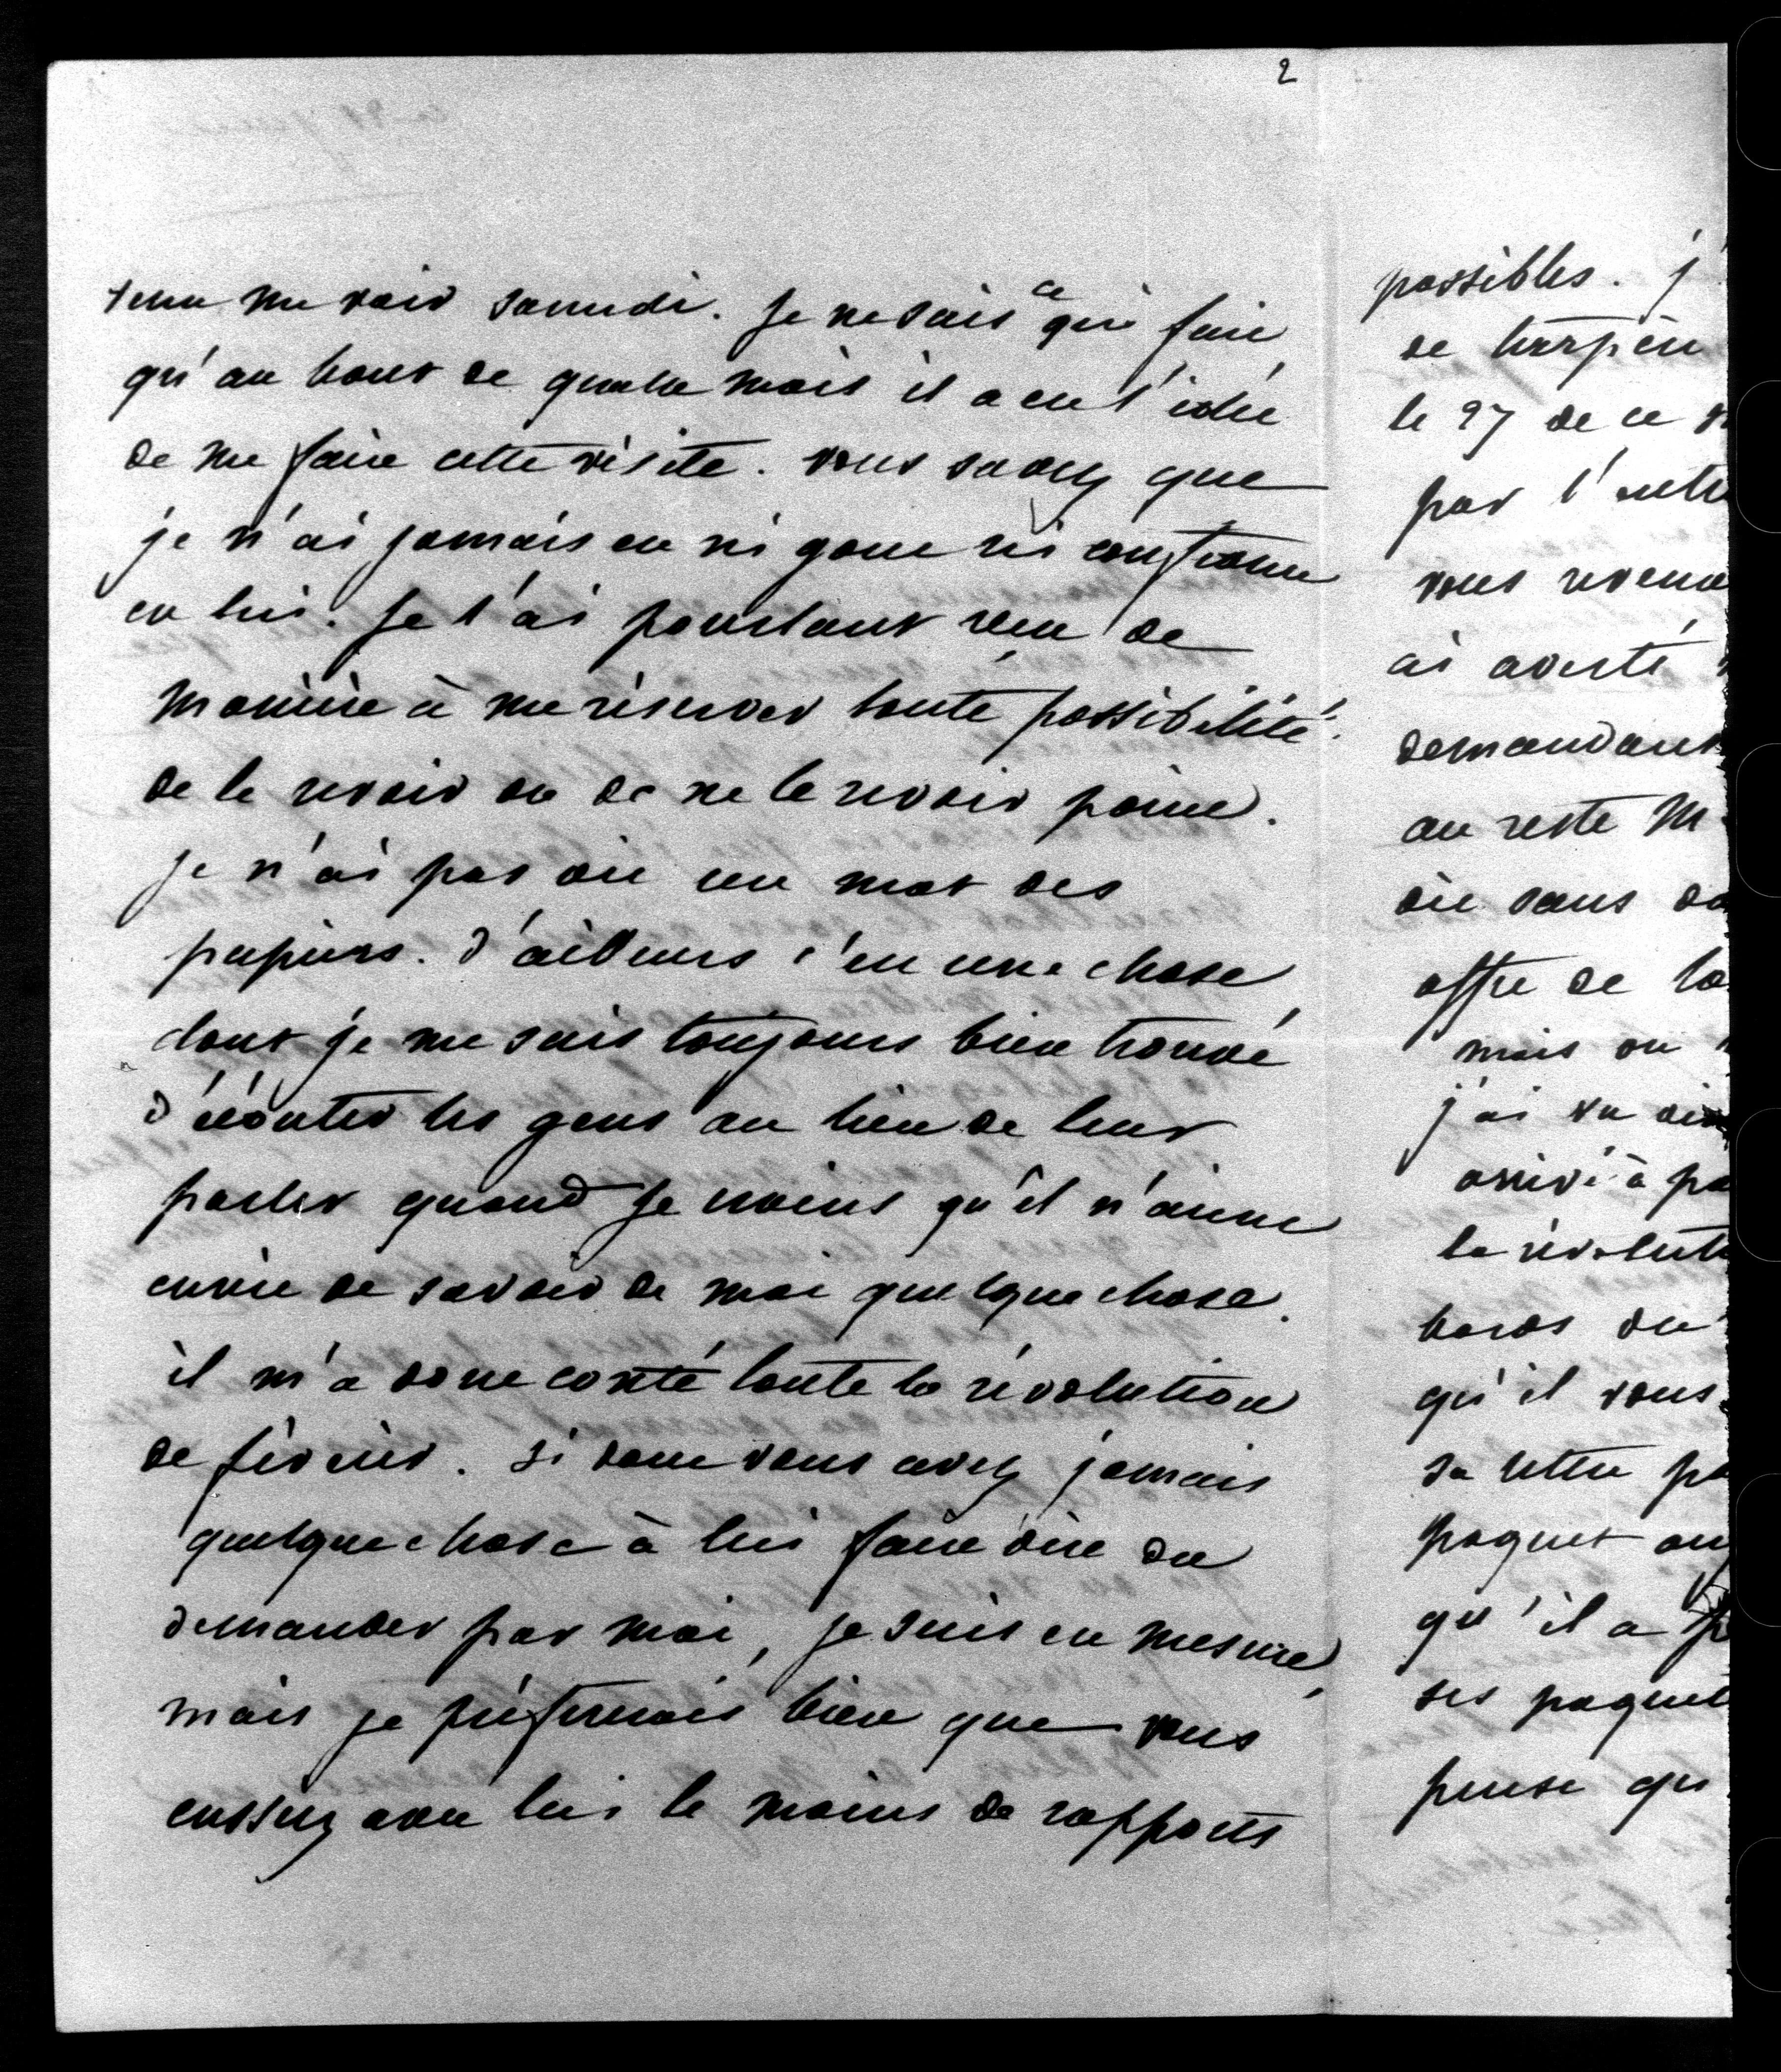 2
venu me voir samedi. Je ne sais ce qui fait
qu'au bout de quatre mois il a eu l'idée
de me faire cette visite. vous savez que
je n'ai jamais eu ni gout ni confiance
en lui. Je l'ai pourtant reçu de
manière à me réserver toute possibilité
de le revoir ou de ne le revoir point.
je n'ai pas dit un mot des
papiers. d'ailleurs c'est une chose
dont je me suis toujours bien trouvé
d'écouter les gens au lieu de leur
parler quand je crains qu'il n'aient
envie de savoir de moi quelque chose.
il m'a donc conté toute la révolution
de février. si donc vous avez jamais
quelque chose à lui faire dire ou
demander par moi, je suis en mesure,
mais je préfererais bien que vous
eussiez avec lui le moins de rapports
possibles. j'
de
le 27 de ce
par l'
vous
ai averti
demandant
au reste M
où sans
offre de
mais on
j'ai vu
arrivé à
la
bords du
qu'il vous
sa lettre
paquet
qu'il a
ses paquets
pense qu